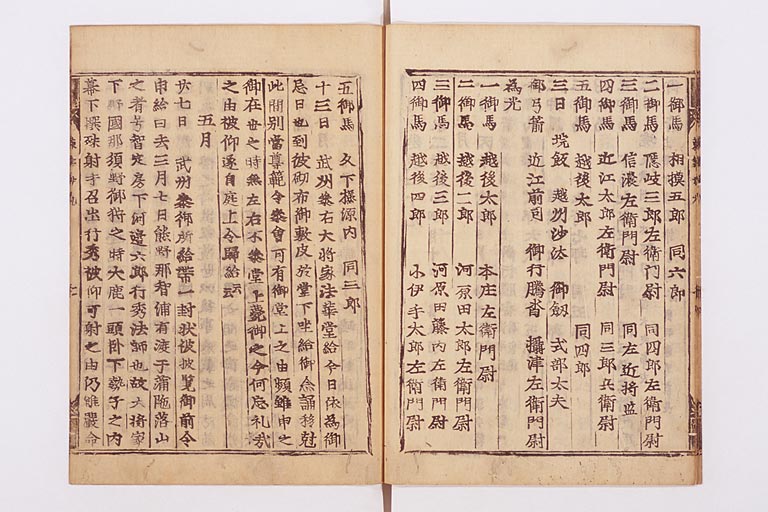 一御馬 相摸五郎 同六郎
二御馬 隱岐三郎左衛门尉 同四郎左衛門尉
三御馬 信濃左衛門尉 同左近将监
四御馬 近江太郎左衛門尉 同三郎兵衛尉
五御馬 越後太郎 同四郎
三日 垸飯 越州沙汰 御釼 式部太夫
御弓箭 近江前司 御行騰沓 攝津左衛門尉
為光
一御馬 越後太郎 本庄左衛門尉
二御馬 越後二郎 河原田太郎左衛門尉
三御馬 越後三郎 河原田藤内左衛門尉
四御馬 越後四郎 小伊手太郎左衛門尉
五御馬 久下撡源内 同三郎
十三日 武州参右大将家法華堂給今日依為御
忌日也到彼砌布御敷皮於堂下坐給御念誦移尅
此間別當尊範令参會可有御堂上之由頻雖申之
御在世之時無左右不参堂上薨御之今何忘礼哉
之由被仰遂自庭上令歸給云
五月
廿七日 武州参御所給帶一封状被披覧御前令
申給曰去三月七日熊野那智浦有渡于補陁落山
之者号智定房下河邉六郎行秀法師也故大将家
下野國那須野御狩之時大鹿一頭卧下勢子之内
幕下撰殊射手召出行秀被仰可射之由仍雖嚴命